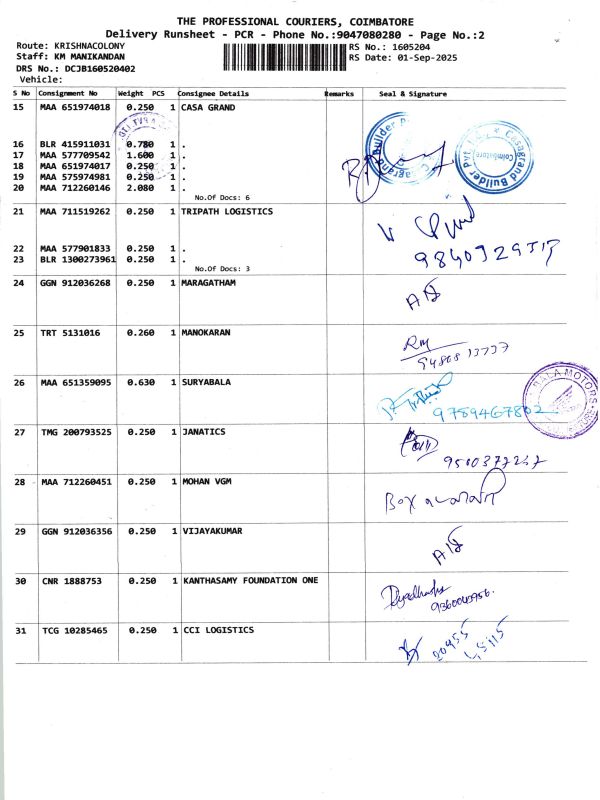 THE PROFESSIONAL COURIERS, COIMBATORE
Delivery Runsheet - PCR - Phone No.:9047080280 - Page No.:2
Route: KRISHNACOLONY
Staff: KM MANIKANDAN
DRS No.: DCJB160520402
Vehicle:
RS No.: 1605204
RS Date: 01-Sep-2025
S No Consignment No Weight PCS Consignee Details Remarks Seal & Signature
15 MAA 651974018 0.250 1 CASA GRAND
16 BLR 415911031 0.780 1 .
17 MAA 577709542 1.600 1 .
18 MAA 651974017 0.250 1 .
19 MAA 575974981 0.250 1 .
20 MAA 712260146 2.080 1 .
No.Of Docs: 6
Casagrand Builder Pvt. Coimbatore
21 MAA 711519262 0.250 1 TRIPATH LOGISTICS
22 MAA 577901833 0.250 1 .
23 BLR 1300273961 0.250 1 .
No.Of Docs: 3
24 GGN 912036268 0.250 1 MARAGATHAM
25 TRT 5131016 0.260 1 MANOKARAN
Rm
26 MAA 651359095 0.630 1 SURYABALA
9789467802
BALA MOTORS
27 TMG 200793525 0.250 1 JANATICS
28 MAA 712260451 0.250 1 MOHAN VGM
Box
29 GGN 912036356 0.250 1 VIJAYAKUMAR
30 CNR 1888753 0.250 1 KANTHASAMY FOUNDATION ONE
31 TCG 10285465 0.250 1 CCI LOGISTICS